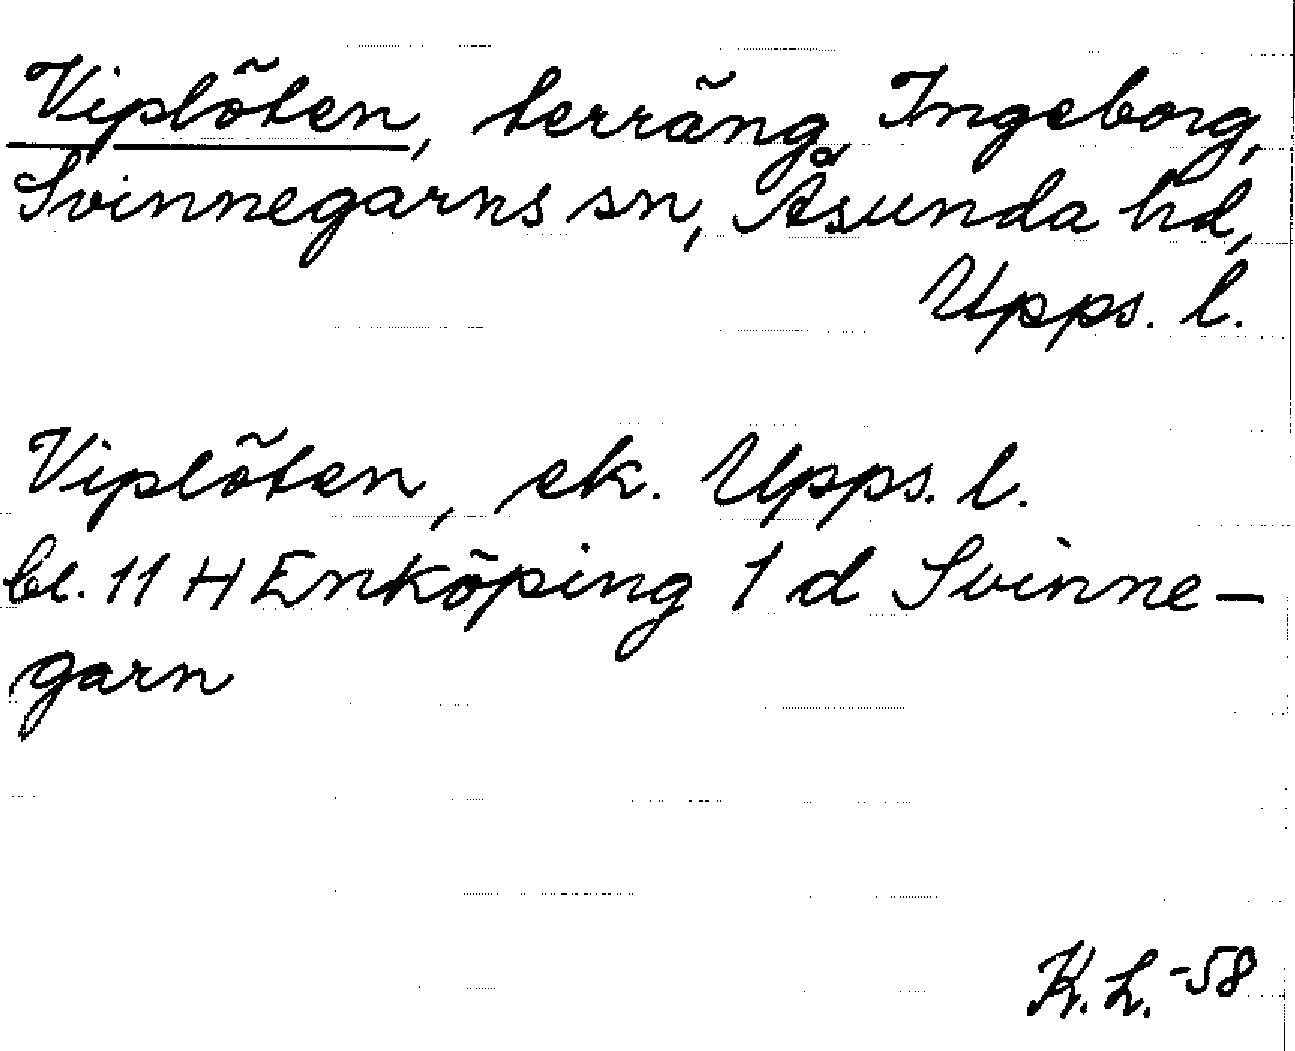 Viplöten, terräng, Ingeborg,
Svinnegarns sn, Åsunda hd,
Upps. l.
Viplöten, ek. Upps. l.
bl. 11 H Enköping 1 d Svinne-
garn
K. L. -58